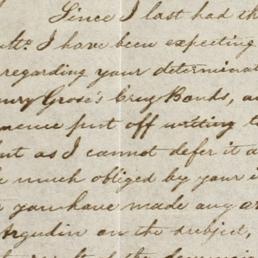 Since I last had th
I have been expecting
regarding your determinat
Grose's Creg Bonds, a
put off writing t
but as I cannot defer it a
much obliged by your i
you have made any ar
Argudin on the subject,